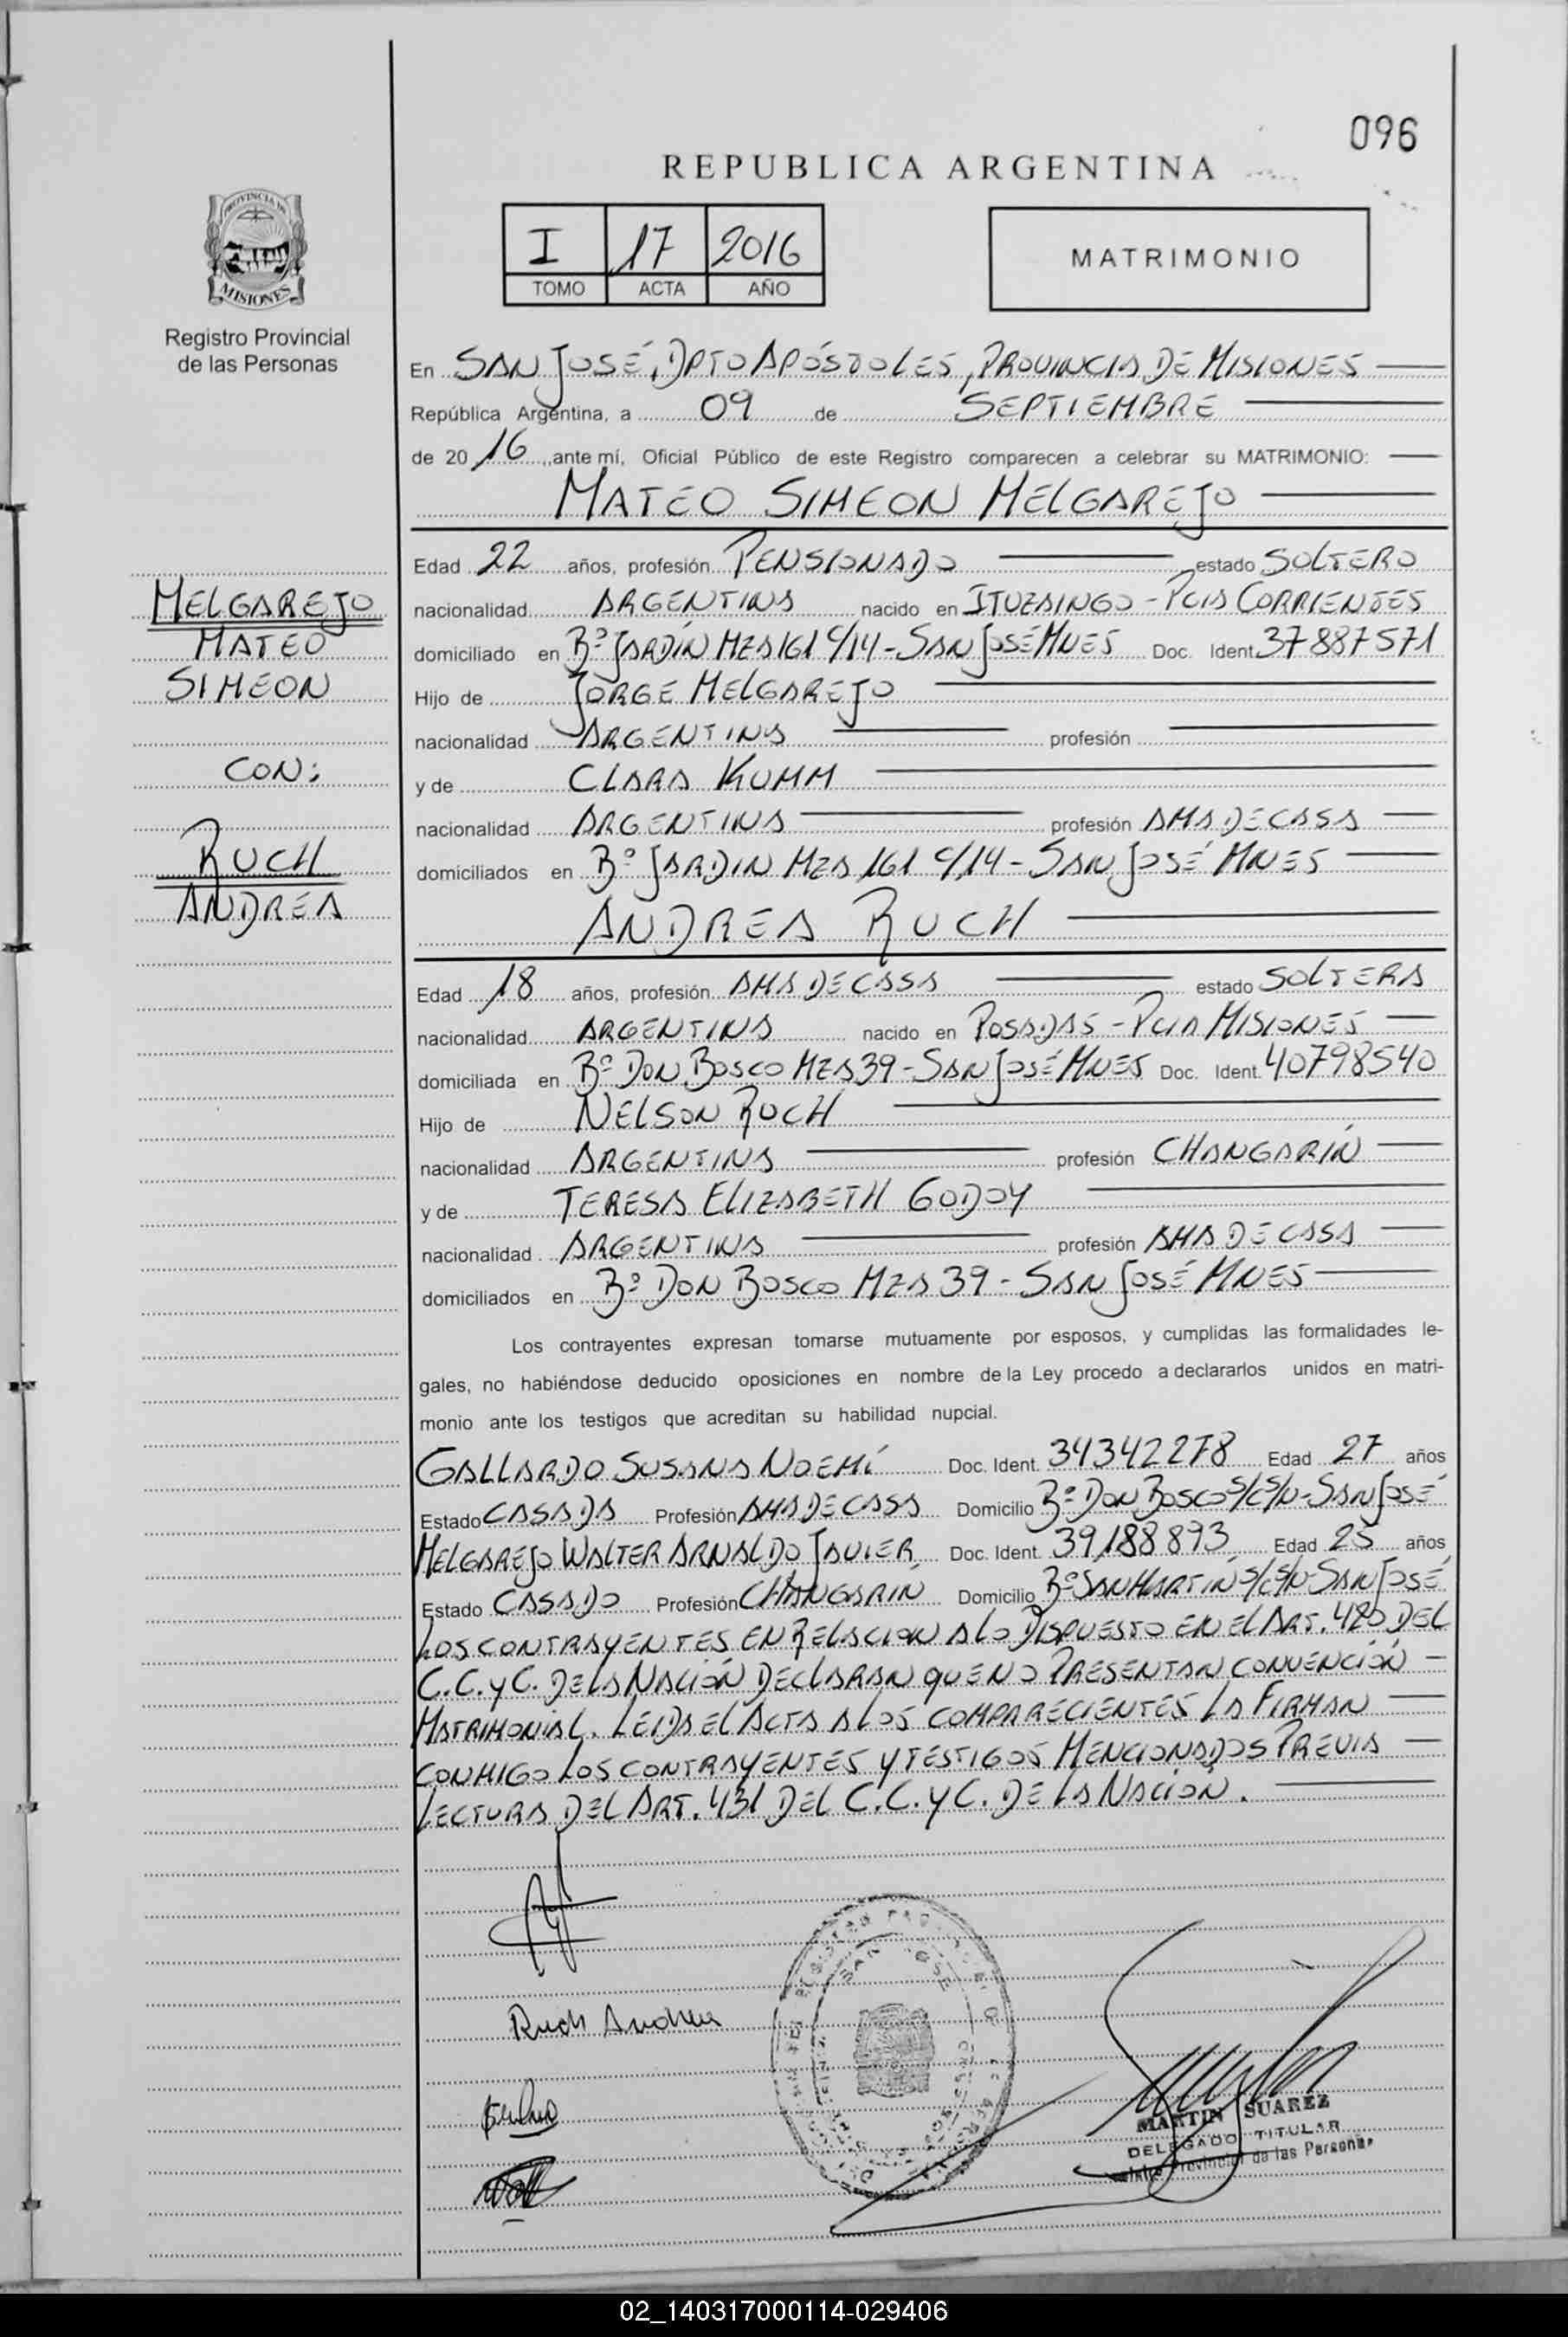 096
REPUBLICA ARGENTINA
PROVINCIA DE
MISIONES
Registro Provincial
de las Personas
I 17 2016
TOMO ACTA AÑO
MATRIMONIO
En SAN JOSÉ, DPTO APÓSTOLES, PROVINCIA DE MISIONES
República Argentina, a 09 de SEPTIEMBRE
de 20 16, ante mí, Oficial Público de este Registro comparecen a celebrar su MATRIMONIO:
MATEO SIMEON MELGAREJO
Edad 22 años, profesión PENSIONADO estado SOLTERO
nacionalidad ARGENTINA nacido en ITUZAINGO - PCIA CORRIENTES
domiciliado en Bº JARDÍN MZA 161 C/14 - SAN JOSÉ MNES Doc. Ident. 37887571
Hijo de JORGE MELGAREJO
nacionalidad ARGENTINA profesión
y de CLARA KUMM
nacionalidad ARGENTINA profesión AMA DE CASA
domiciliados en Bº JARDIN MZA 161 C/14 - SAN JOSÉ MNES
MELGAREJO
MATEO
SIMEON
CON:
RUCH
ANDREA
ANDREA RUCH
Edad 18 años, profesión AMA DE CASA estado SOLTERA
nacionalidad ARGENTINA nacido en POSADAS - PCIA MISIONES
domiciliada en Bº DON BOSCO MZA 39 - SAN JOSÉ MNES Doc. Ident. 40798540
Hijo de NELSON RUCH
nacionalidad ARGENTINA profesión CHANGARÍN
y de TERESA ELIZABETH GODOY
nacionalidad ARGENTINA profesión AMA DE CASA
domiciliados en Bº DON BOSCO MZA 39 - SAN JOSÉ MNES
Los contrayentes expresan tomarse mutuamente por esposos, y cumplidas las formalidades le-
gales, no habiéndose deducido oposiciones en nombre de la Ley procedo a declararlos unidos en matri-
monio ante los testigos que acreditan su habilidad nupcial.
GALLARDO SUSANA NOEMÍ Doc. Ident. 34342278 Edad 27 años
Estado CASADA Profesión AMA DE CASA Domicilio Bº DON BOSCO S/C S/N - SAN JOSÉ
MELGAREJO WALTER ARNALDO JAVIER Doc. Ident. 39188893 Edad 25 años
Estado CASADO Profesión CHANGARIN Domicilio Bº SAN MARTIN S/C S/N - SAN JOSÉ
LOS CONTRAYENTES EN RELACION A LO DISPUESTO EN EL ART. 420 DEL
C.C. y C. DE LA NACIÓN DECLARAN QUE NO PRESENTAN CONVENCIÓN
MATRIMONIAL. LEIDA EL ACTA A LOS COMPARECIENTES LA FIRMAN
CONMIGO LOS CONTRAYENTES Y TESTIGOS MENCIONADOS PREVIA
LECTURA DEL ART. 431 DEL C.C. y C. DE LA NACIÓN.
Ruch Andrea
SAN JOSE
MARTIN SUAREZ
DELEGADO TITULAR
Provincial de las Personas
02_140317000114-029406